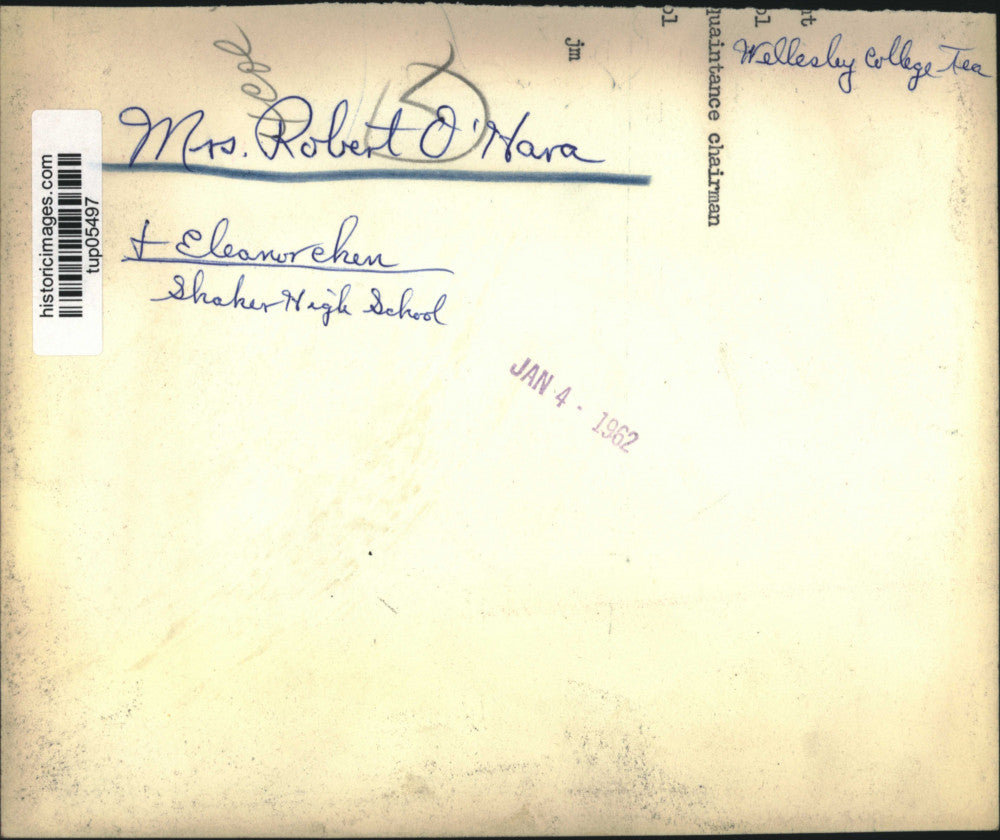 Wellesley College Tea
Mrs. Robert O'Hara
+ Eleanor Chen
Shaker High School
JAN 4 - 1962
historicimages.com
tup05497
jm
ol
quaintance chairman
ol
nt